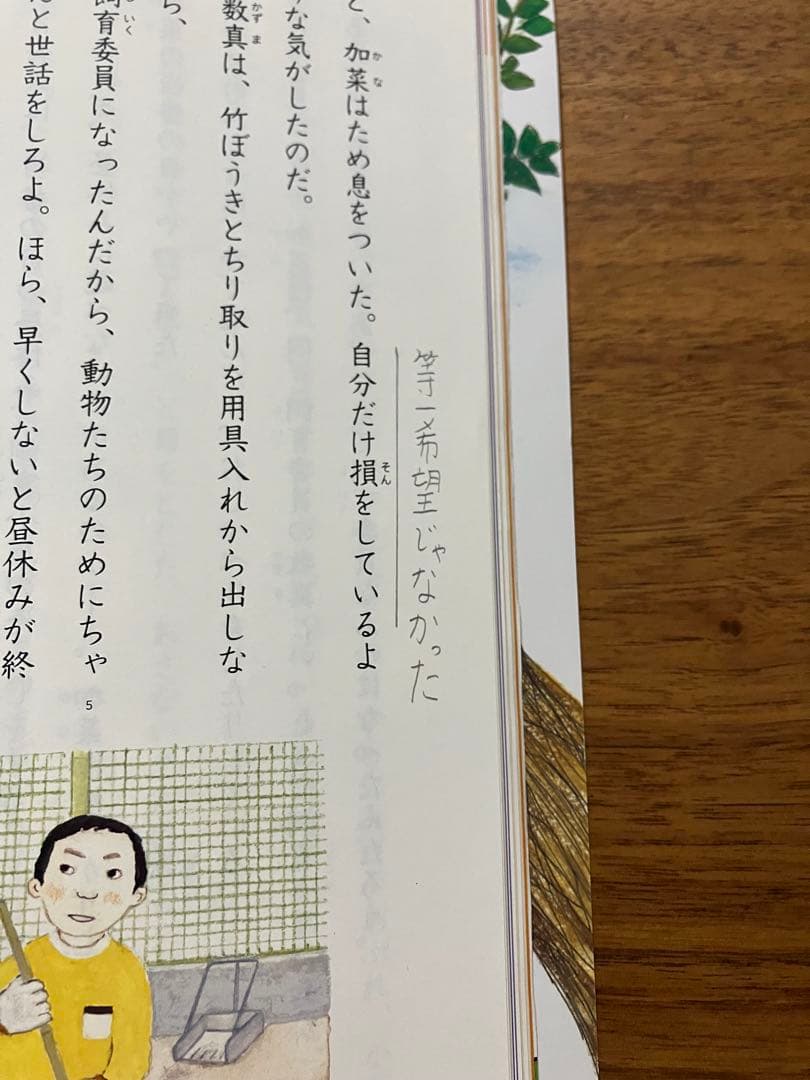 等一希望じゃなかった
と、加菜はため息をついた。自分だけ損をしているよ
かな
そん
うな気がしたのだ。
数真は、竹ぼうきとちり取りを用具入れから出しな
かずま
ら、
飼育委員になったんだから、動物たちのためにちゃ
いく
んと世話をしろよ。ほら、早くしないと昼休みが終
5